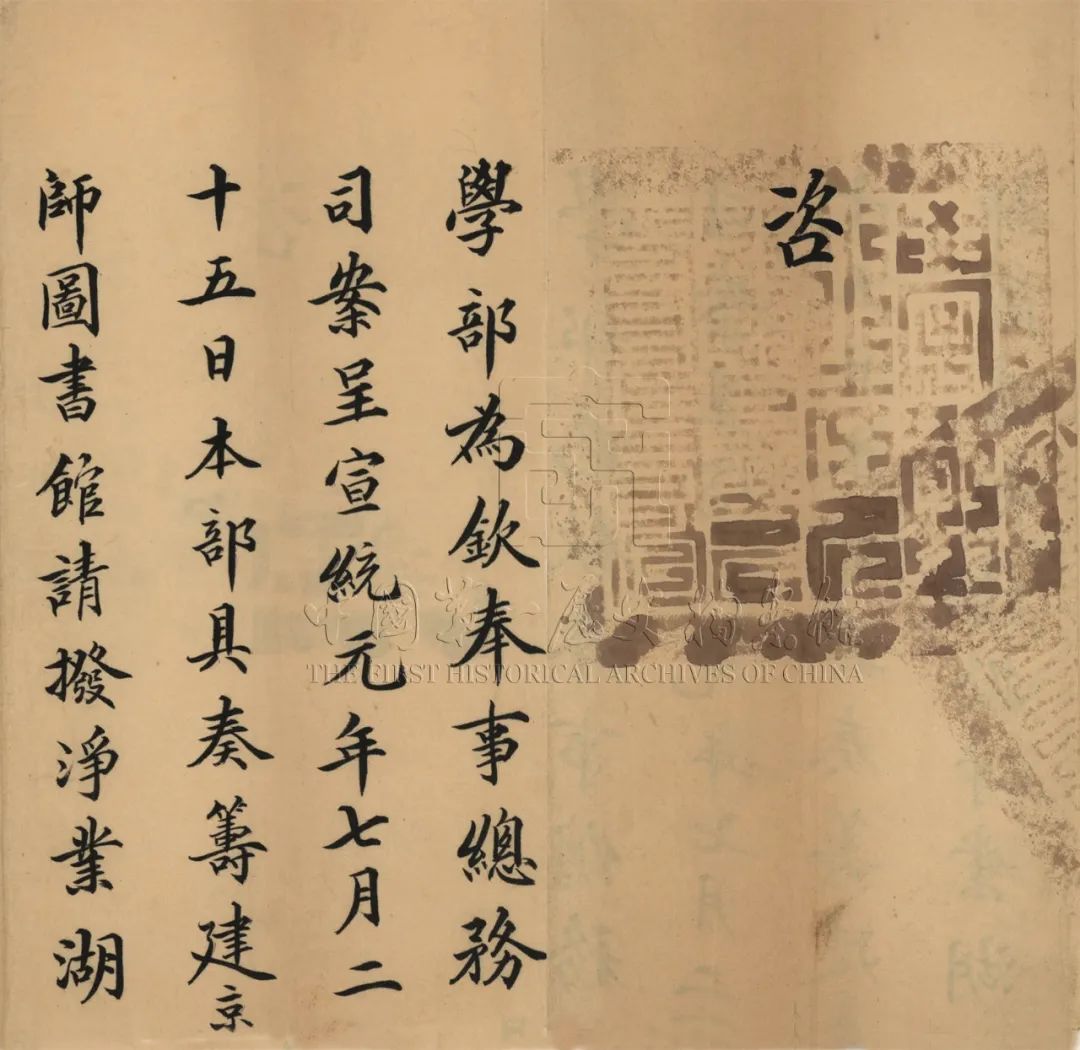 咨
學部為欽奉事總務
司案呈宣統元年七月二
十五日本部具奏籌建京
師圖書館請撥淨業湖
中國第一歷史檔案館
THE FIRST HISTORICAL ARCHIVES OF CHINA